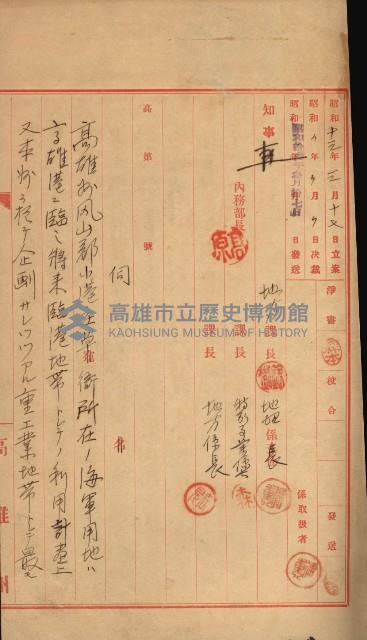 昭和十三年三月十七日立案
昭和 年 月 日決裁
昭和 年 月 日發送
淨書
校合
發送
知事
內務部長
地方課長
課長
課長
地理係長
特別事業係
地方係長
係取扱者
高 第 號
伺
高雄州鳳山郡小港庄草衙所在ノ海軍用地ハ
高雄港ニ臨ミ將來臨港地帶トシテノ利用計畫上
又本州ニ於テ企劃サレツツアル重工業地帶トシテ最モ
高雄市立歷史博物館
KAOHSIUNG MUSEUM OF HISTORY
高雄州